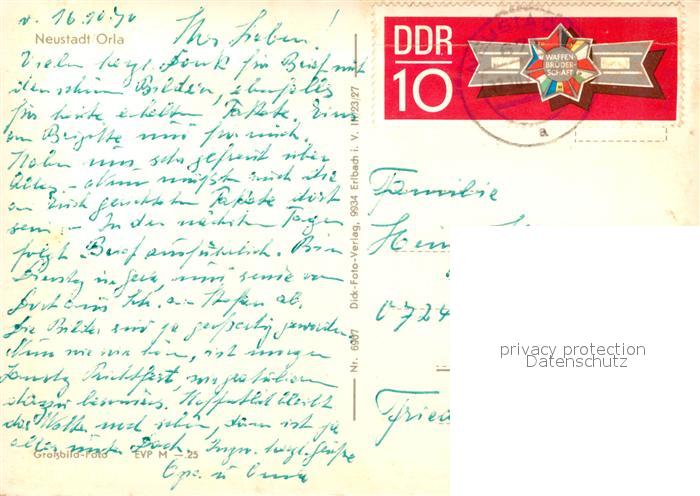 v. 16.10.70
Neustadt Orla
Ihr Lieben!
Vielen herzl. Dank für Brief mit
den schönen Bildern, ebenfalls
für heute erhalten Pakete. Eins
an Brigitte und für mich.
Haben uns sehr gefreut über
Alles. – Nun müßten auch die
an Euch gesandten Pakete dort
sein. – In den nächsten Tagen
folgt Brief ausführlich. Bin
Dienstag in Gera, und sende von
dort aus
ab.
Die Bilder sind ja großartig geworden.
Nun wie wir hören, ist morgen
Samstag Richtfest,
Hoffentlich bleibt
das Wetter noch schön, dann ist ja
alles unter Dach. Innn. herzl. Grüße
Opa u Oma
Großbild-Foto EVP M –.25
Nr. 6907 Dick-Foto-Verlag, 9934 Erlbach i. V. IV/23/27
DDR
10
WAFFEN
BRÜDER
SCHAFT
a
Familie
Hein
0724
Fried
privacy protection
Datenschutz